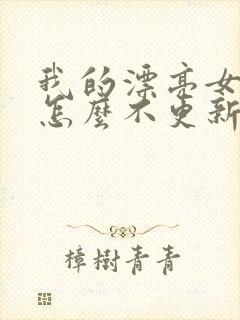 我的漂亮女
怎麼不更新
樟樹青青